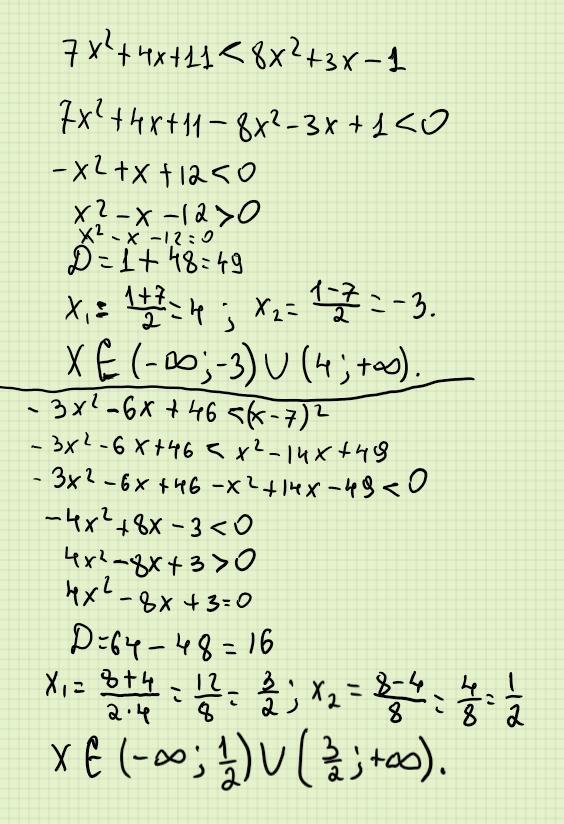 7x²+4x+11<8x²+3x-1
7x²+4x+11-8x²-3x+1<0
-x²+x+12<0
x²-x-12>0
x²-x-12=0
D=1+48=49
x₁=(1+7)/2=4; x₂=(1-7)/2=-3.
X∈(-∞;-3)∪(4;+∞).
-3x²-6x+46<(x-7)²
-3x²-6x+46<x²-14x+49
-3x²-6x+46-x²+14x-49<0
-4x²+8x-3<0
4x²-8x+3>0
4x²-8x+3=0
D=64-48=16
x₁=(8+4)/(2·4)=12/8=3/2; x₂=(8-4)/8=4/8=1/2
X∈(-∞;1/2)∪(3/2;+∞).